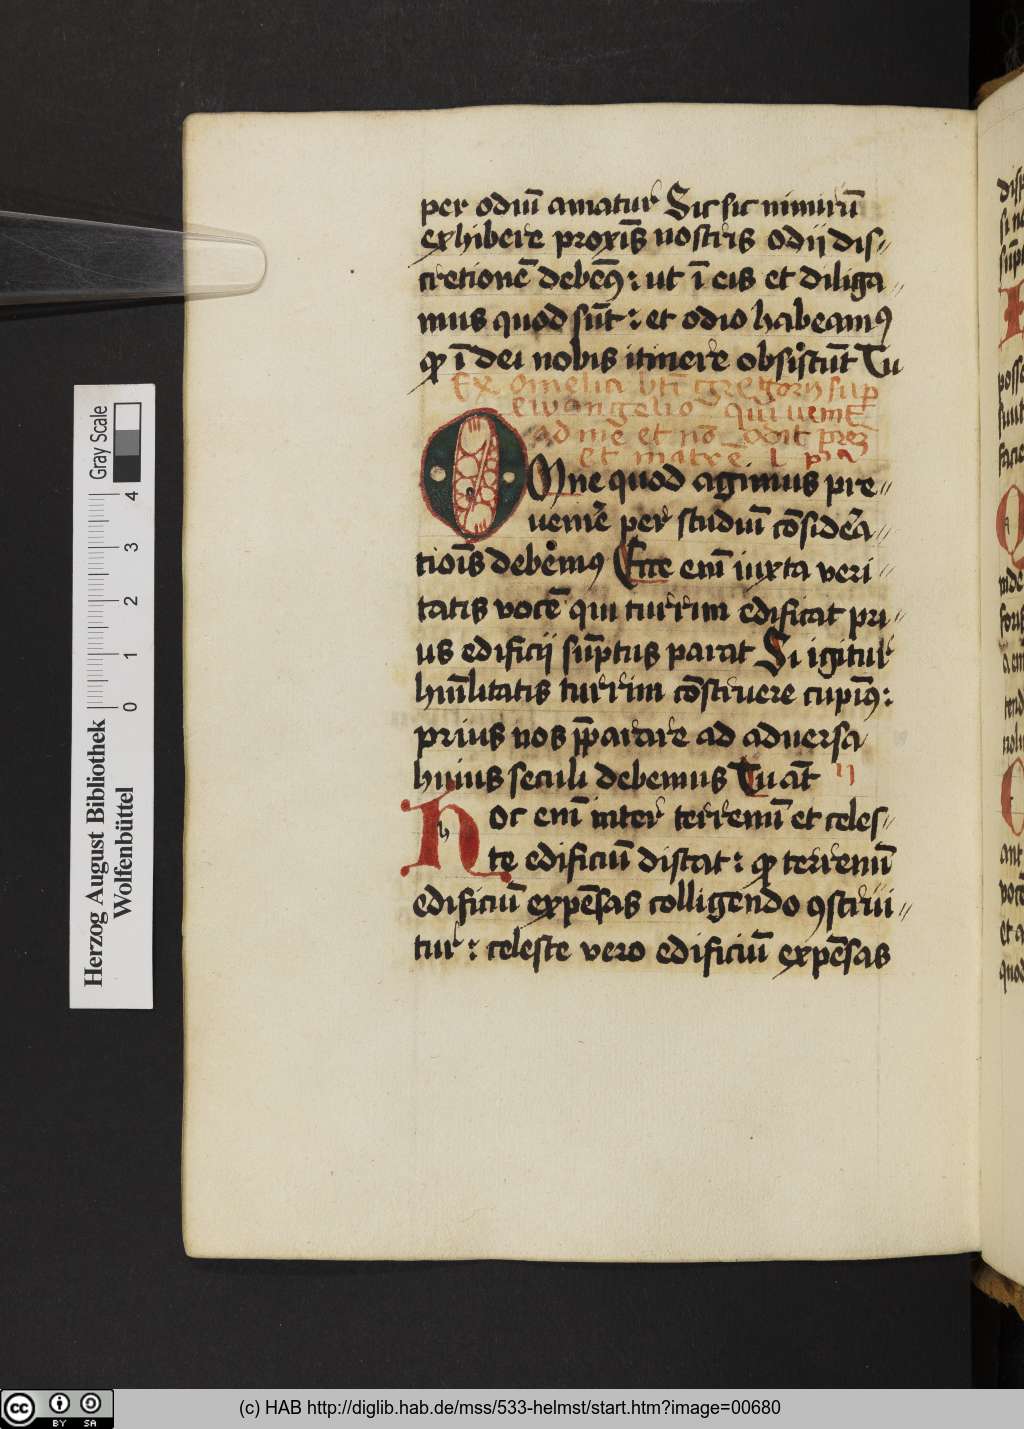 per odiū amatur Sic sic nimirū
exhibere proxīs nostris odij dis⸗
cretionē debeꝫ: ut ī eis et diliga⸗
mus quod sūt: et odio habeamꝰ
ꝙ ī dei nobis itinere obsistūt Tu
Ex omelia btī gregorij sup
ewangelio qui uenit
ad mē et nō odit prēz
et matrē L pͥa
OMne quod agimus pre⸗
uenire per studiū cōsidera⸗
tiōis debemꝰ Ecce enī iuxta veri⸗
tatis vocē qui turrim edificat pri⸗
us edificij sūptus parat Si igitur
hūilitatis turrim cōstruere cupimꝰ:
prius nos p̄parare ad aduersa
huius seculi debemus Tu aūt ij
Hoc enī inter terrenū et celes⸗
te edificiū distat: ꝙ terrenū
edificiū expēsas colligendo ꝯstrui⸗
tur: celeste vero edificiū expēsas
Herzog August Bibliothek
Wolfenbüttel
0 1 2 3 4
Gray Scale
(c) HAB http://diglib.hab.de/mss/533-helmst/start.htm?image=00680
cc BY SA